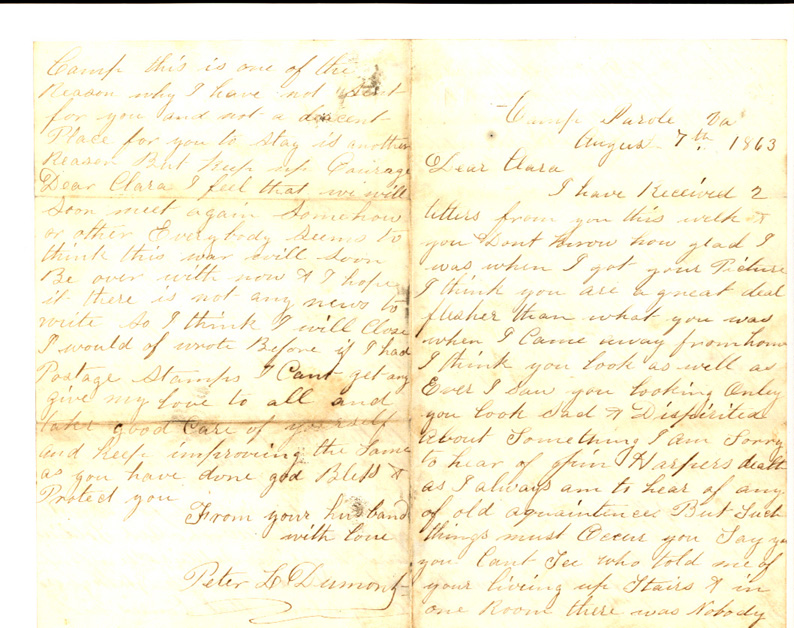 Camp Parole Va
August 7th 1863
Dear Clara
I have Received 2
letters from you this week &
you Dont Know how glad I
was when I got your Picture
I think you are a great deal
flesher than what you was
when I Came away from home
I think you look as well as
Ever I saw you looking Onley
you look sad & Dispirited
About Something I am Sorry
to hear of Harpers death
as I always am to hear of any
of old aquaintence But Such
things must Occur you Say you
you Cant See who told me of
your liveing up Stairs & in
one Room there was Nobody
Camp this is one of the
Reason why I have not sent
for you and not a deacent
Place for you to stay is another
Reason But keep up Courage
Dear Clara I feel that we will
soon meet again Somehow
or other Everybody seems to
think this war will soon
Be over with now & I hope
it there is not any news to
write So I think I will Close
I would of wrote Before if I had
Postage Stamps I Cant get any
give my love to all and
take good Care of yourself
and keep improveing the Same
as you have done god Bless &
Protect you
From your husband
with love
Peter L Dumont